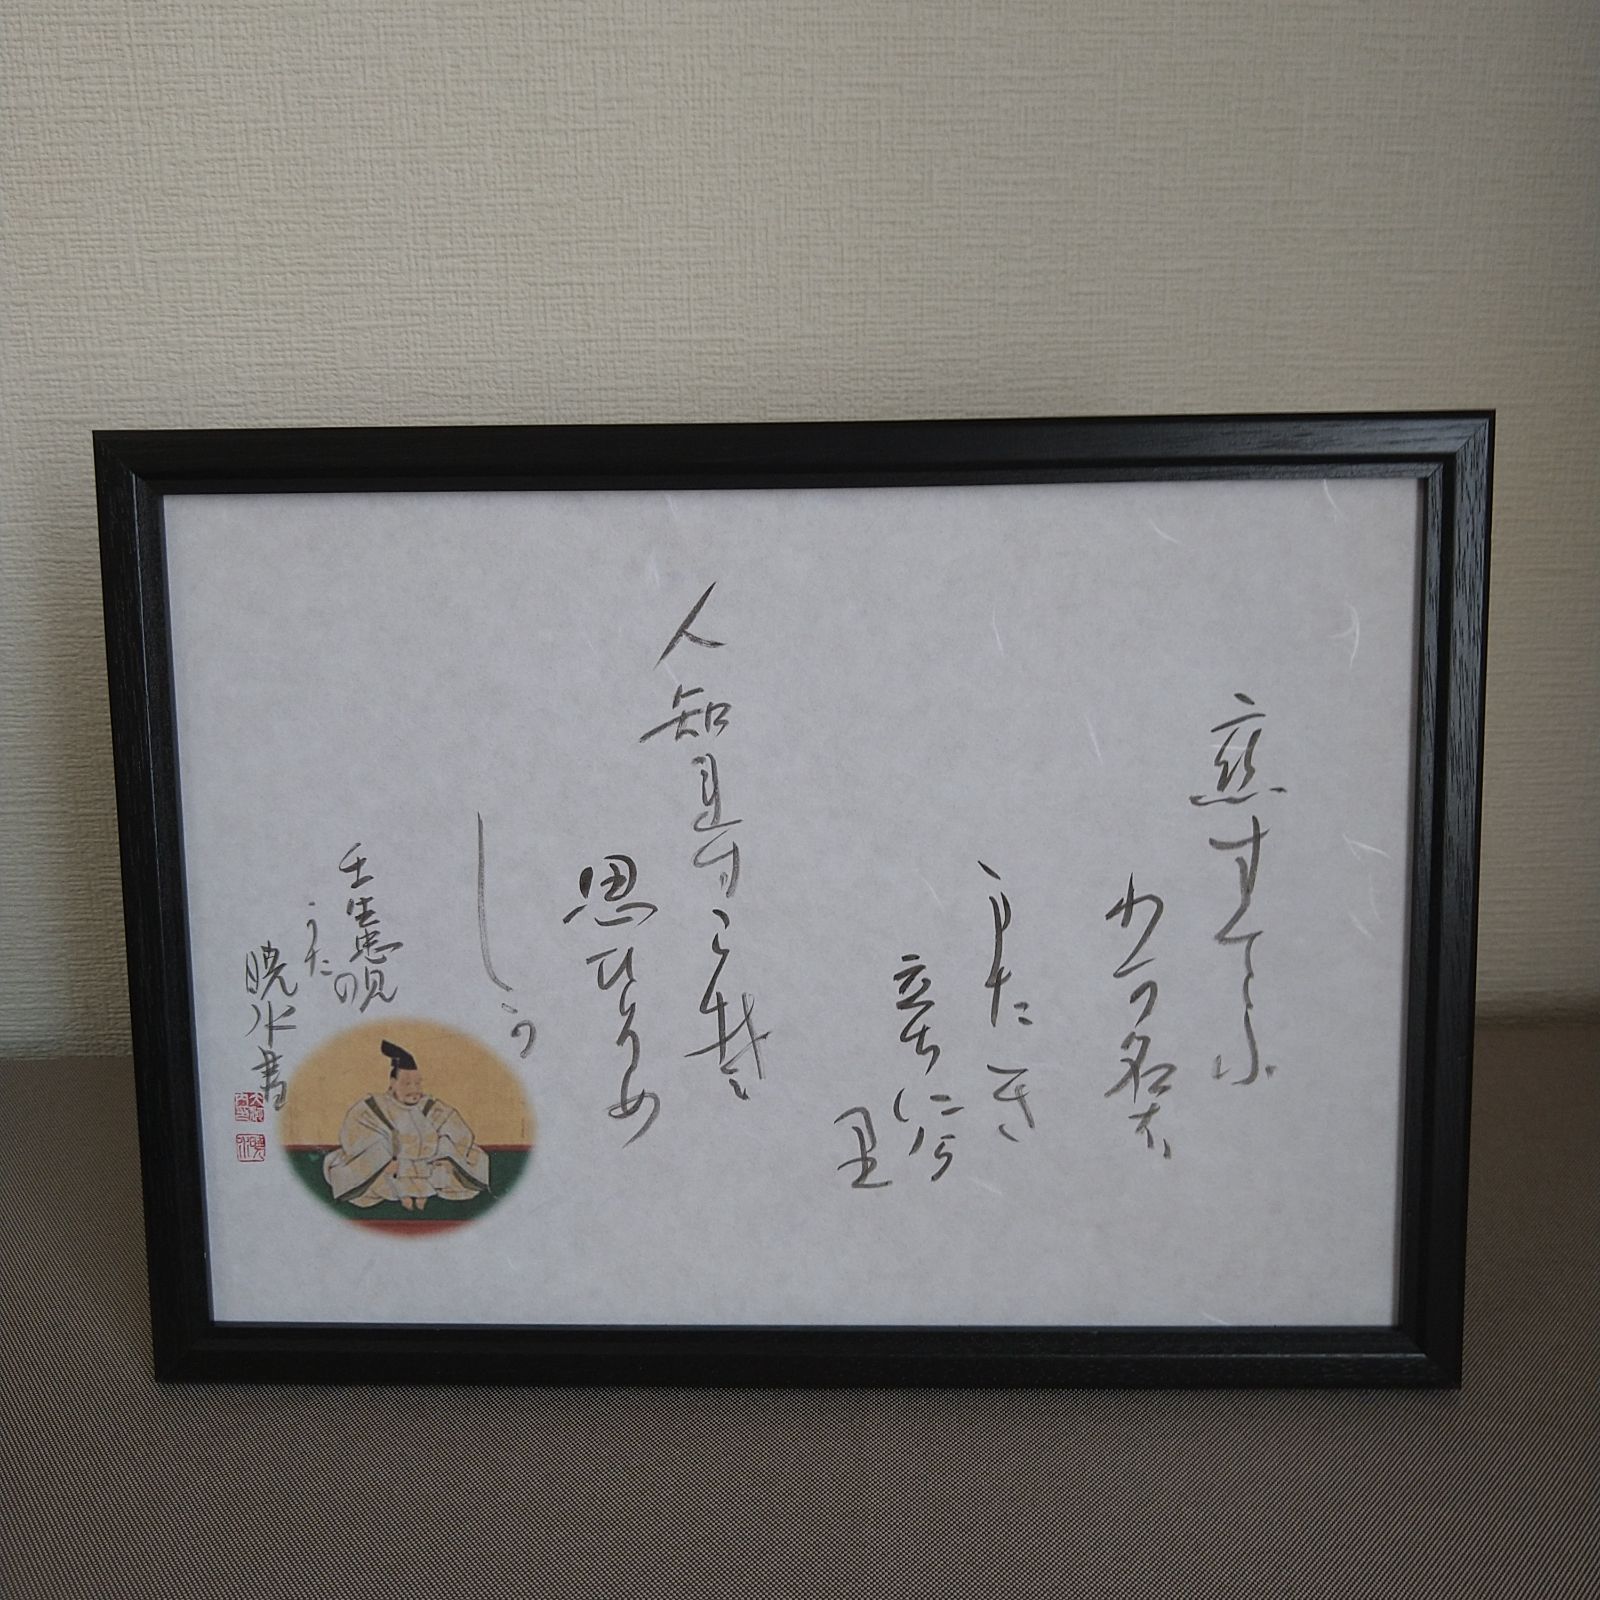 恋すてふ
わが名は
まだき
立ちに介
里
人知れずこそ
思ひそめ
しか
壬生忠見の
うた
暁水書